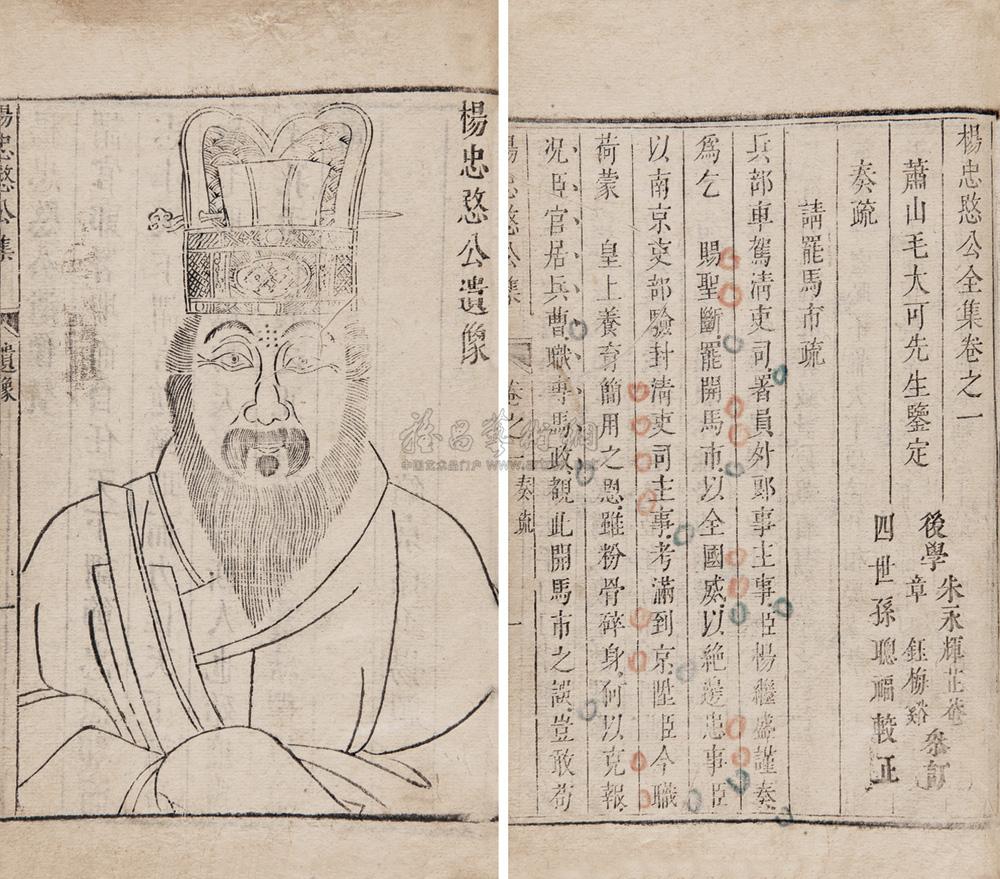 楊忠愍公遺像
楊忠愍公集
遺像
楊忠愍公全集卷之一
蕭山毛大可先生鑒定
後學
朱永輝芷菴
章鈺梅谿
叅訂
四世孫聰福較正
奏疏
請罷馬市疏
兵部車駕清吏司署員外郎事主事臣楊繼盛謹奏
爲乞 賜聖斷罷開馬市以全國威以絶邊患事臣
以南京吏部驗封清吏司主事考滿到京陞臣今職
荷蒙 皇上養育簡用之恩雖粉骨碎身何以克報
况臣官居兵曹職專馬政覩此開馬市之誤豈敢苟
楊忠愍公集
卷之一奏疏
一
中国艺术品门户 www.